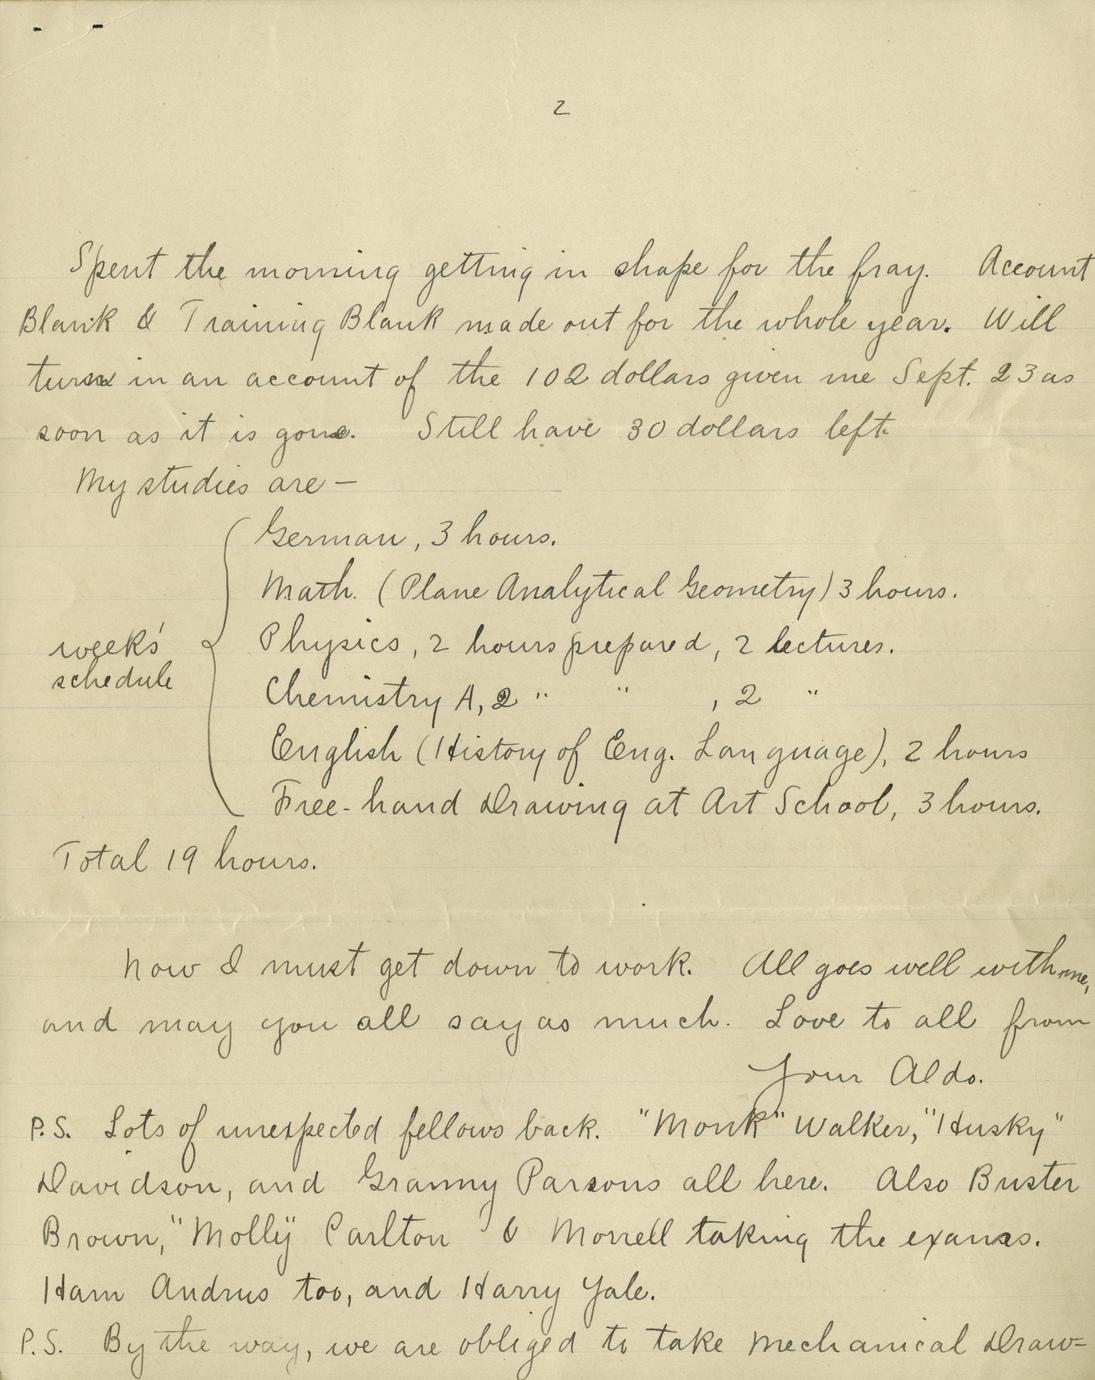 2
Spent the morning getting in shape for the fray. Account
Blank & Training Blank made out for the whole year. Will
turn in an account of the 102 dollars given me Sept. 23 as
soon as it is gone. Still have 30 dollars left.
My studies are —
German, 3 hours.
Math. (Plane Analytical Geometry) 3 hours.
week's
Physics, 2 hours prepared, 2 lectures.
schedule
Chemistry A, 2 " " , 2 "
English (History of Eng. Language), 2 hours
Free-hand Drawing at Art School, 3 hours.
Total 19 hours.
Now I must get down to work. All goes well with me,
and may you all say as much. Love to all from
Your Aldo.
P.S. Lots of unexpected fellows back. "Monk" Walker, "Husky"
Davidson, and Granny Parsons all here. Also Buster
Brown, "Molly" Carlton & Morrell taking the exams.
Ham Andrus too, and Harry Yale.
P.S. By the way, we are obliged to take Mechanical Draw-